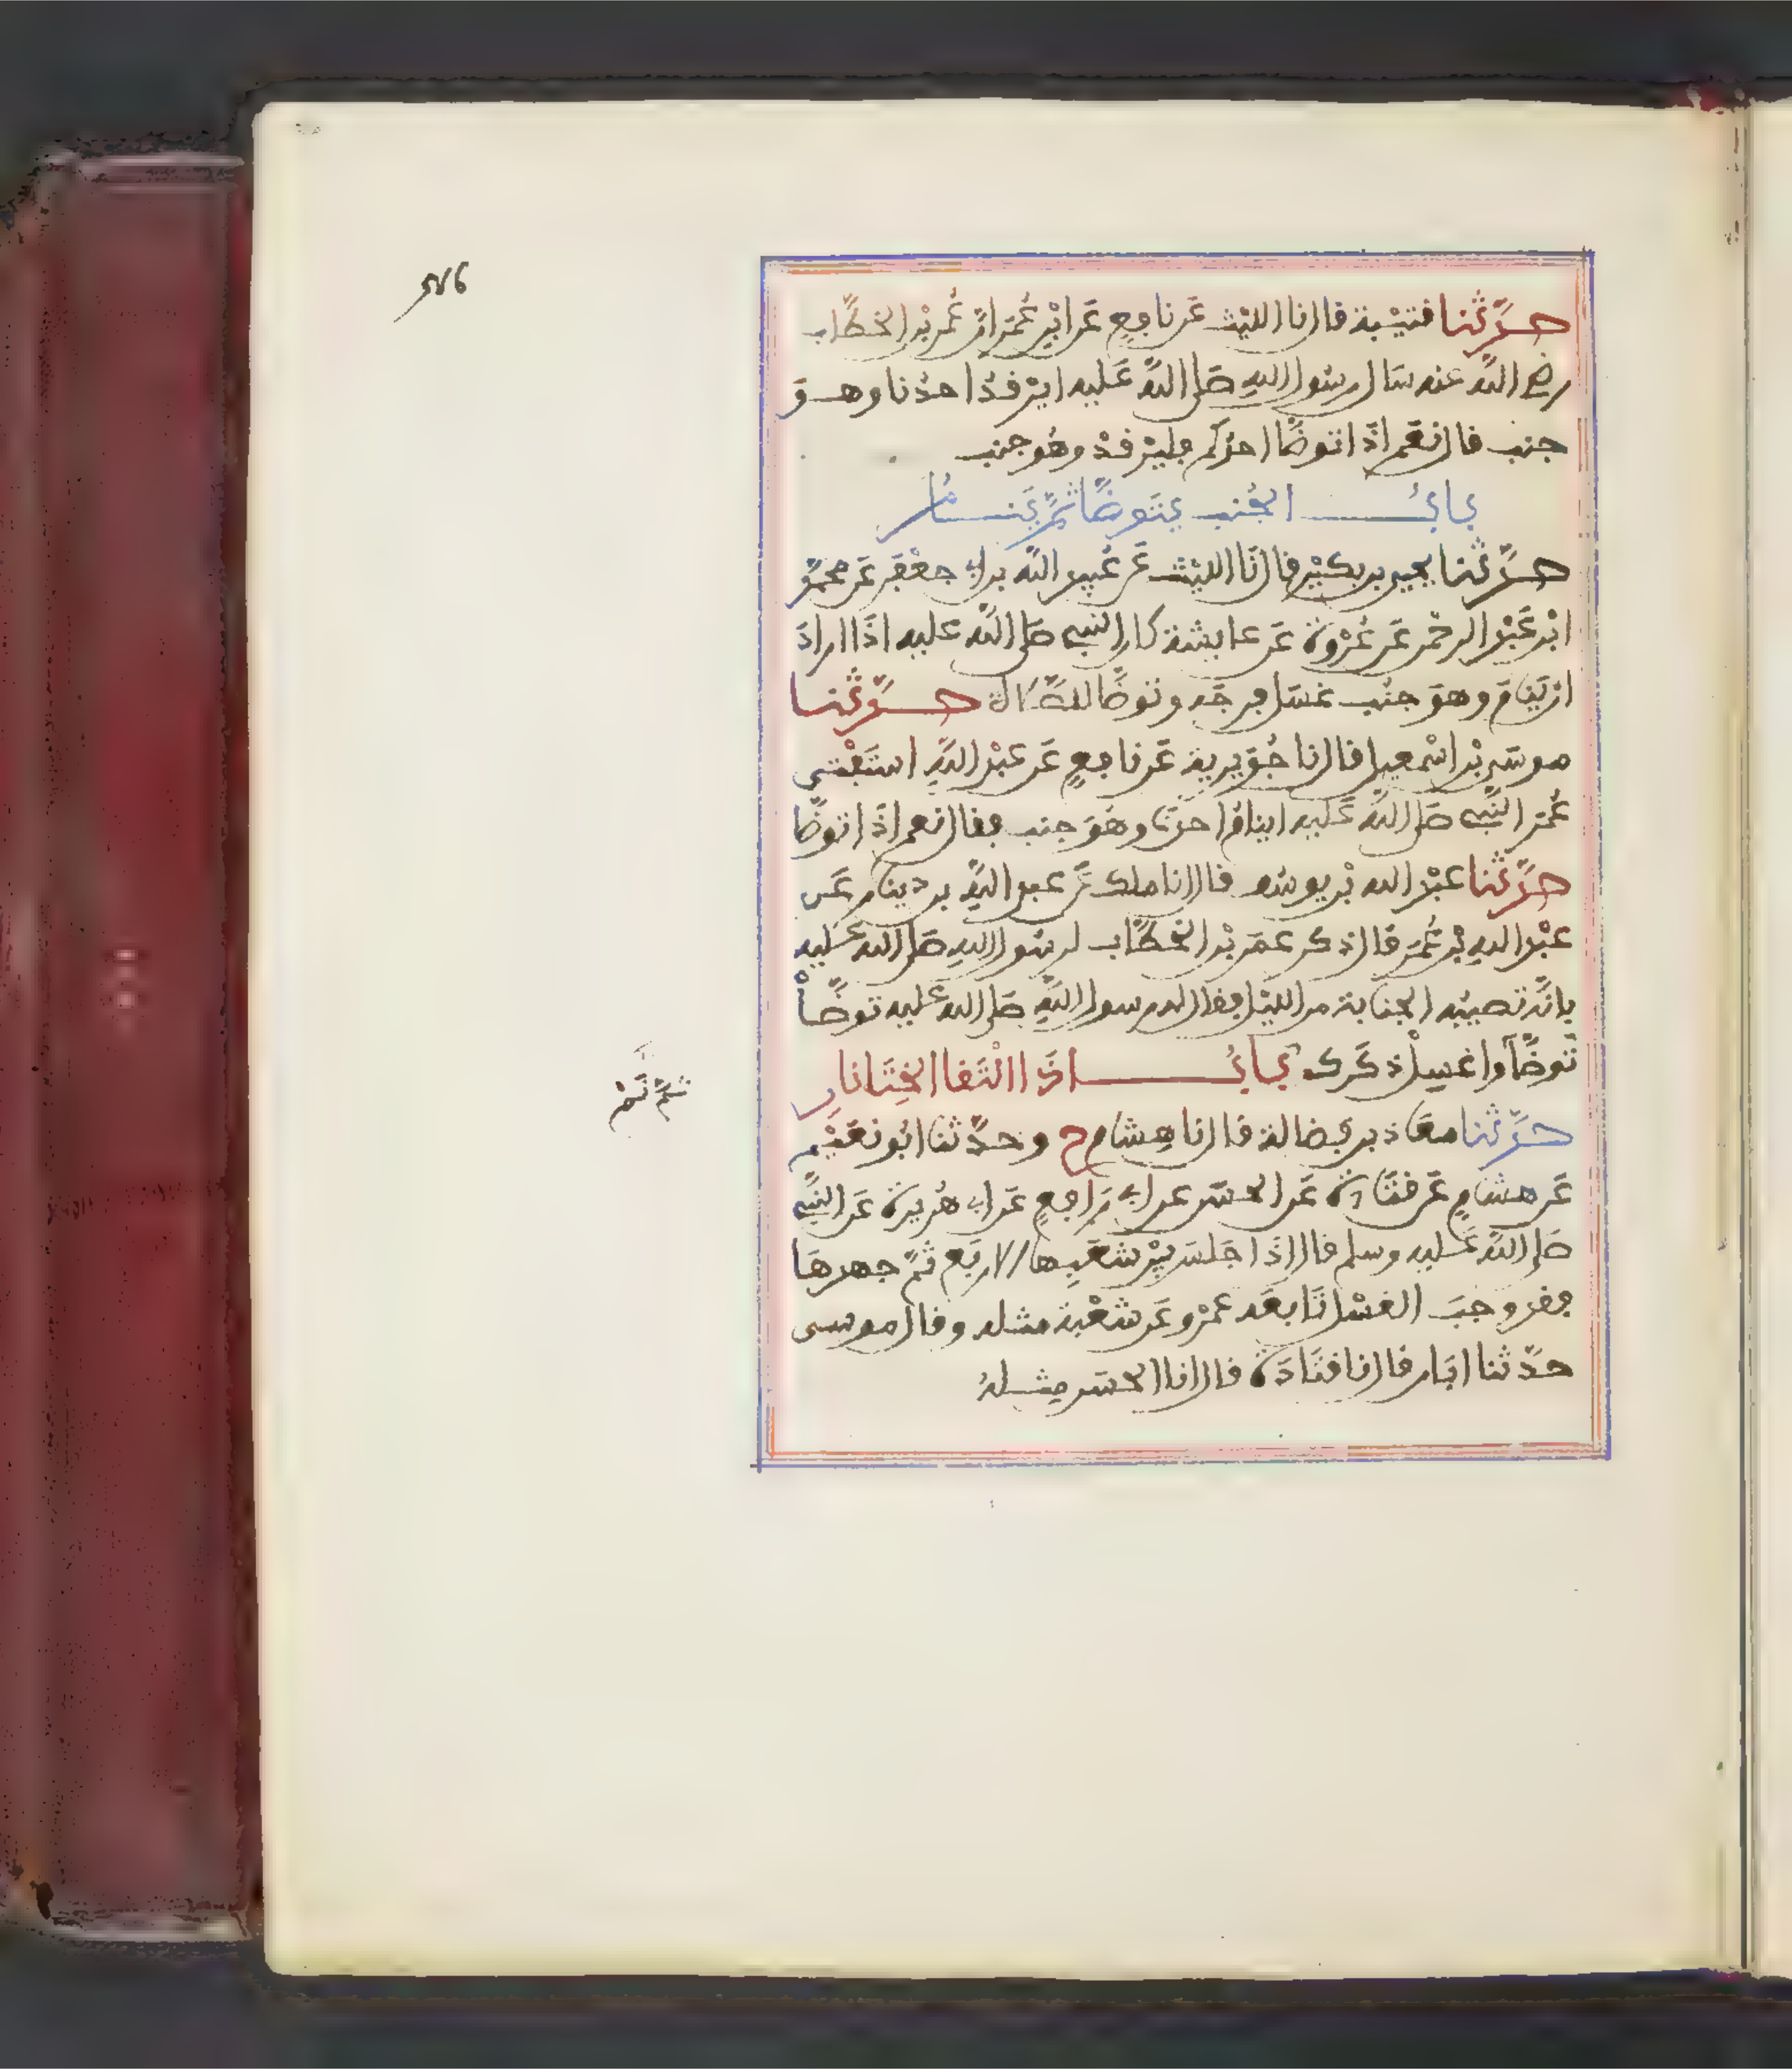 حدثنا قتيبة قال نا الليث عن نافع عن ابن عمر ان عمر بن الخطاب
رضي الله عنه سال رسول الله صلى الله عليه ايرقد احدنا وهو
جنب قال نعم اذا توضا احدكم فليرقد وهو جنب
باب الجنب يتوضا ثم ينام
حدثنا يحيى بن بكير قال نا الليث عن عبيد الله بن ابي جعفر عن محمد
ابن عبد الرحمن عن عروة عن عايشة كان النبي صلى الله عليه اذا اراد
ان ينام وهو جنب غسل فرجه وتوضا للصلاة حدثنا
موسى بن اسمعيل قال نا جويرية عن نافع عن عبد الله استفتى
عمر النبي صلى الله عليه اينام احدنا وهو جنب فقال نعم اذا توضا
حدثنا عبد الله بن يوسف قال انا ملك عن عبد الله بن دينار عن
عبد الله بن عمر قال ذكر عمر بن الخطاب لرسول الله صلى الله عليه
بانه تصيبه الجنابة من الليل فقال له رسول الله صلى الله عليه توضا
توضا واغسل ذكرك باب اذا التقا الختانان
ثم نم
حدثنا معاذ بن فضالة قال نا هشام ح وحدثنا ابو نعيم
عن هشام عن قتادة عن الحسن عن ابي رافع عن ابي هريرة عن النبي
صلى الله عليه وسلم قال اذا جلس بين شعبها الاربع ثم جهدها
فقد وجب الغسل تابعه عمرو عن شعبة مثله وقال موسى
حدثنا ابان قال نا قتادة قال انا الحسن مثله